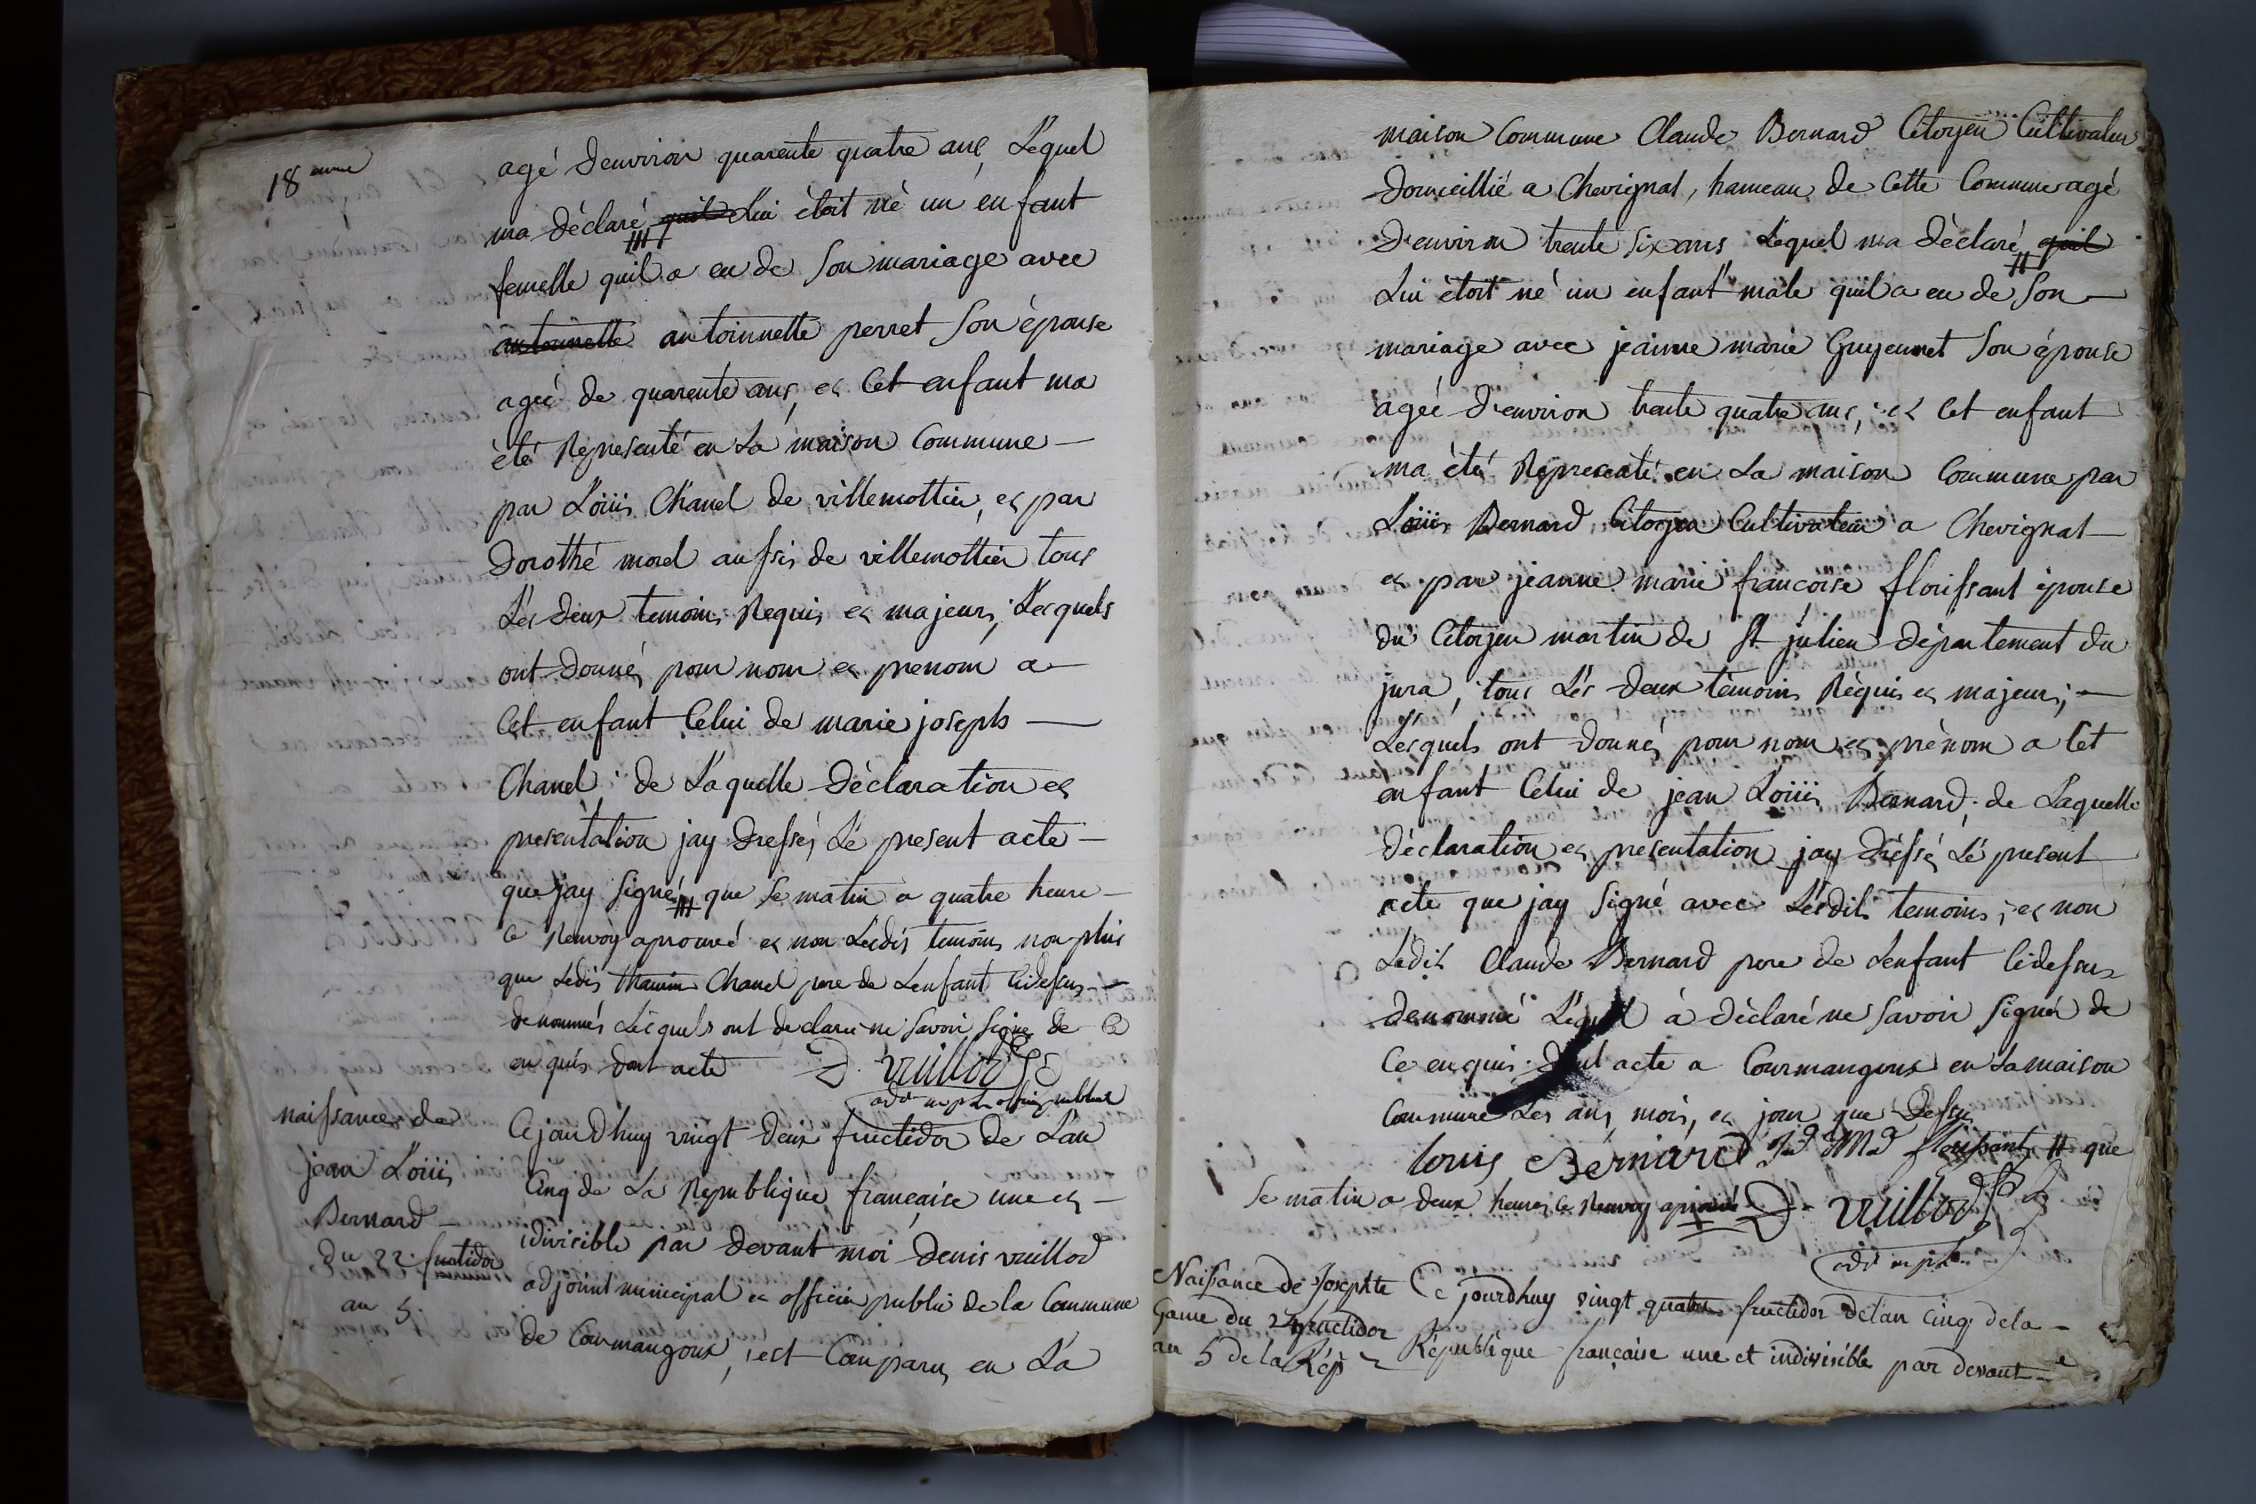 18 eme
agé d'environ quarente quatre ans, Lequel
ma dèclaré quil Lui ètoit né un enfant
femelle quil a eu de Son mariage avec
antoinnette antoinnette perret Son épouse
ageé de quarente ans, et Cet enfant ma
èté Représenté en La maison Commune —
par Loüis Chanel de villemottier, et par
Dorothé morel aussis de villemottier tous
Lés deux temoins Requis et majeurs, Lesquels
ont donnés pour nom et prenom a
Cet enfant Celui de marie joseph —
Chanel; de Laquelle Déclaration et
présentation jay dressés Lé present acte —
que jay Signé, que Se matin a quatre heure —
Ce Renvoy aprouvé et non Lesdis temoins non plus
que Ledis Chanel pere de Lenfant Cidessus —
denommés Lesquels ont declaré ne Savoir Signe de Ce
enquis dont acte D. vuillod
adt mpl officier publice
naissance de
jean Loüis
Bernard —
du 22 fructidor
an 5.
Cejourdhuy vingt deux fructidor de Lan
Cinq de La Republique française une et —
idivisible par devant moi Denis vuillod
adjoint municipal et officier public de la Commune
de Courmangoux, est Comparu en La
maison Commune Claude Bernard Citoyen Cultivateur
Domicillié a Chevignat, hameau de Cette Commune agé
d'environ trente Six ans Lequel ma dèclaré quil
Lui ètoit né un enfant mâle quil a eu de Son —
mariage avec jeanne marie Guyennet Son épouse
ageé d'environ trente quatre ans; et Cet enfant
ma èté Représenté en La maison Commune par
Loüis Bernard Citoyen Cultivateur a Chevignat —
et par jeanne marie francoise florissant épouse
du Citoyen martin de St julien département du
jura, tous Lés deux tèmoins Réquis et majeurs; —
Lesquels ont donnés pour nom et prènom a Cet
enfant Celui de jean Loüis Bernard; de Laquelle
déclaration et presentation jay dréssé Lé present
acte que jay Signé avec Lésdits temoins, et non
Ledit Claude Bernard pere de Lenfant Cidessus
denommé Lequel à dèclaré ne Savoir Signér de
Ce enquis. Dont acte a Courmangoux en La maison
Commune Les ans, mois, et jour que Dessus
louis Bernard florissant que
Se matin a deux heures Ce Renvoy aprouvé D. vuillod
adt mpl
Naissance de Josephte
Game du 24 fructidor
an 5 de la Rép
Ce jourdhuy vingt quatre fructidor delan cinq dela —
République française une et indivisible par devant —